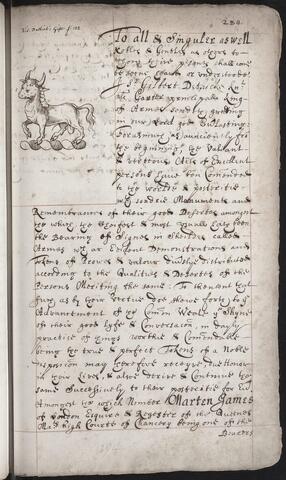 284
To all & Singuler aswell
Kings
persons shall come
to Seene heard or understoode
Gilbert Dethicke Knight
als Garter principall King
of Armes sendeth greeting
in our Lord god Everlasting
forasmuch as aunciently fro
the beginning the Valiant
& vertuous Acts of Excellent
persons have ben Comended
to the worlde & posteritie
wth sondrie Monuments and
Remembrances of their good Desertes amongst
the which the chiefest & most usuall hath ben
the Bearing of Signes in Shildes called
Armes wch ar Evident Demonstrations and
Tokens of prowes & valour diversly distributed
according to the Qualities & Desertes of the
Persons Meriting the same. To thentent that
such as by their vertue doe shewe forth to the
Advancement of the Comon Weale the Shyne
of their good lyfe & Conversacion in dayly
practice of things worthie & Comendable
being the true & perfect Tokens of a Noble
disposicion may therefore receyve due Honor
in their Lives, & also derive & Continue the
same Successively to their posteritie for Ever
Amongst the which Nomber Marten James
of London Esquire & Regester of the Quenes
Mats high Courte of Chancery being one of the
Bearers